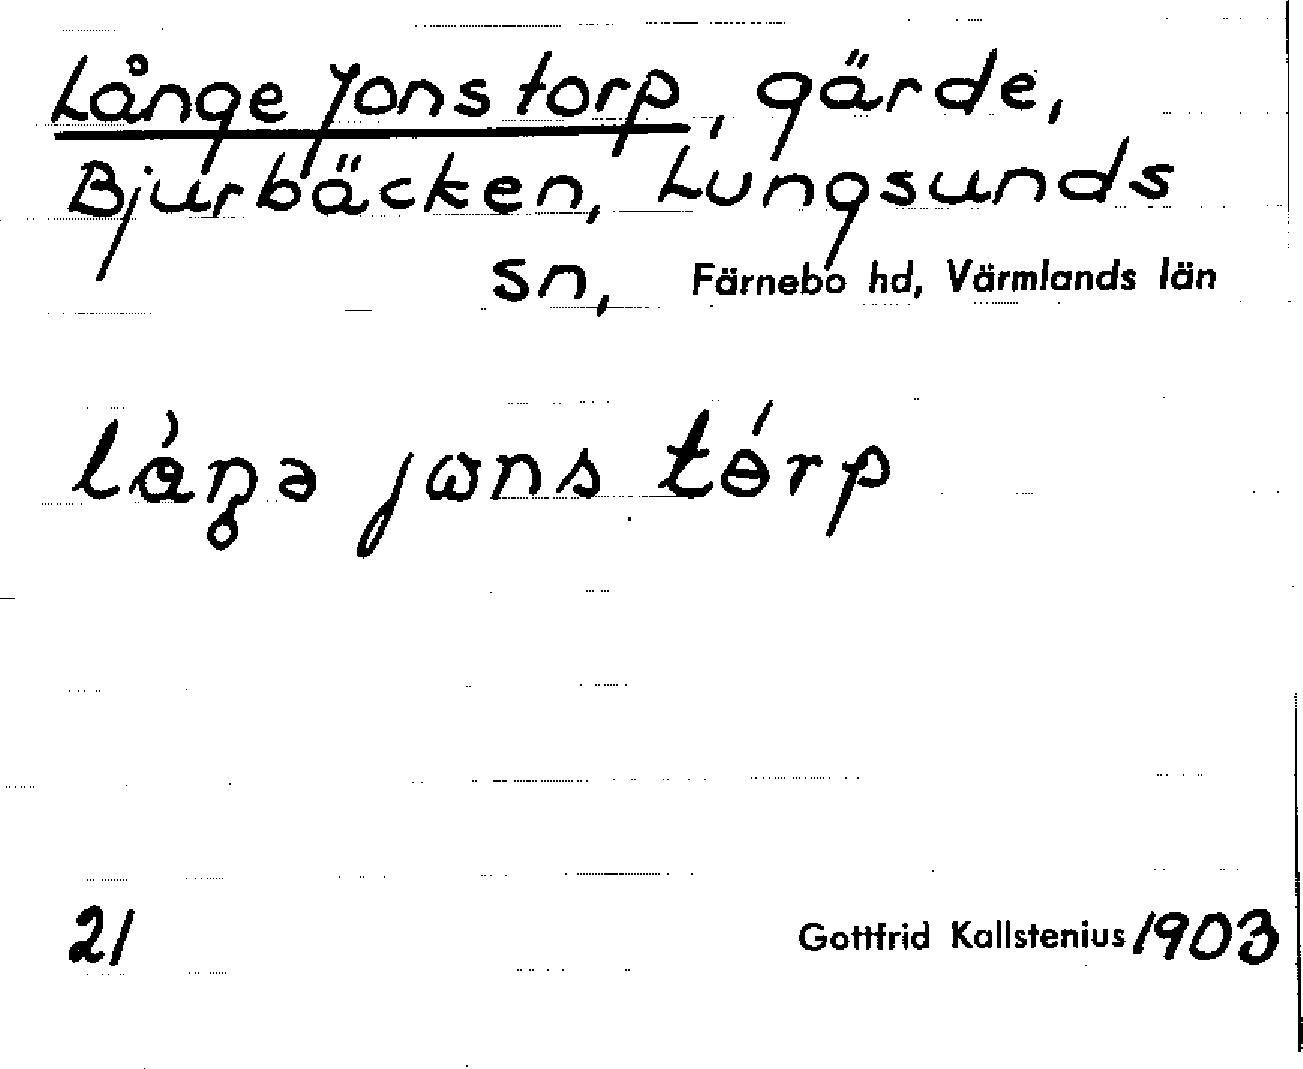 Långe Jons torp, gärde,
Bjurbäcken, Lungsunds
sn, Färnebo hd, Värmlands län
låŋə jɷns tɵ́rp
21 Gottfrid Kallstenius 1903